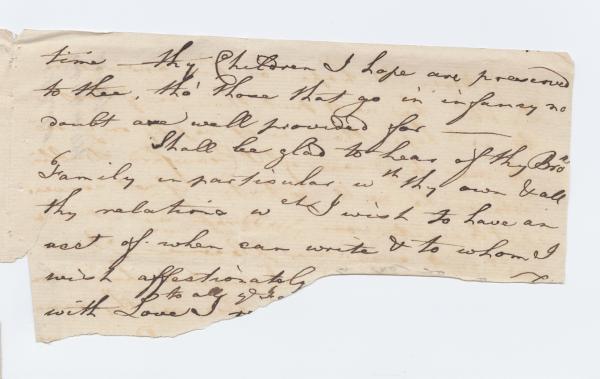 time thy Children I hope are preserved
to thee, tho' those that go in infancy no
doubt are well provided for —
Shall be glad to hear of thy Bro.rs
Family in particular wth thy own & all
thy relations wch I wish to have an
acct of when can write & to whom I
wish affectionately
to all yr
with Love I